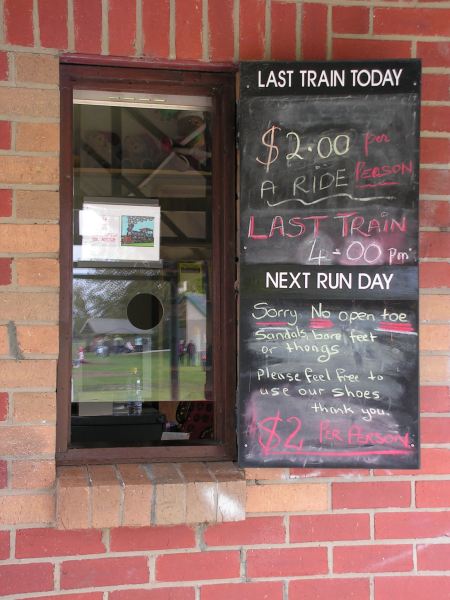 LAST TRAIN TODAY
$2.00 per
A RIDE PERSON
LAST TRAIN
4-00 Pm
NEXT RUN DAY
Sorry No open toe
Sandals, bare feet
or thongs
Please feel free to
use our shoes
thank you.
$2 PER PERSON